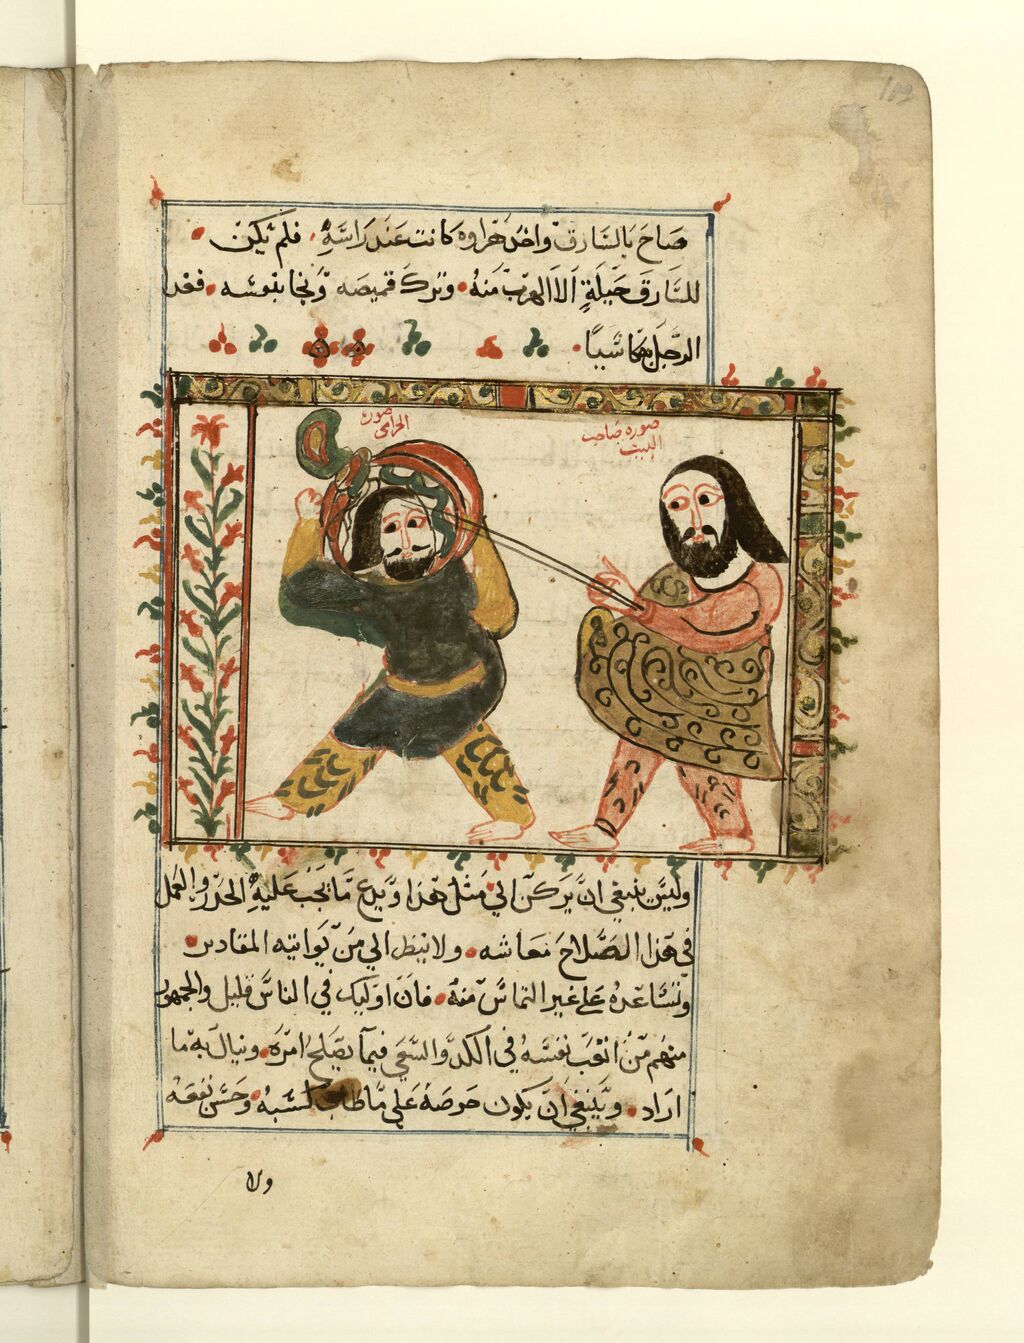 صاح بالسارق واخد هراوه كانت عند راسه فلم يكن
للسارق حيلة الا الهرب منه وترك قميصه ونجا بنفسه فغدا
الرجل بها
صورة الحرامي
صورة صاحب البيت
وليس ينبغي ان يركن الي مثل هذا ويدع ما يجب عليه الحدر والعمل
في هذا الصلاح معاشه ولا ينظر الي من يواتيه المقادير
وتساعده على غير التماس منه فان اوليك في الناس قليل والجمهور
منهم من اتعب نفسه في الكد والسعي فيما يصلح امره وينال به ما
اراد وينبغي ان يكون حرصه على ما طاب كسبه وحسن نفعه
ولا